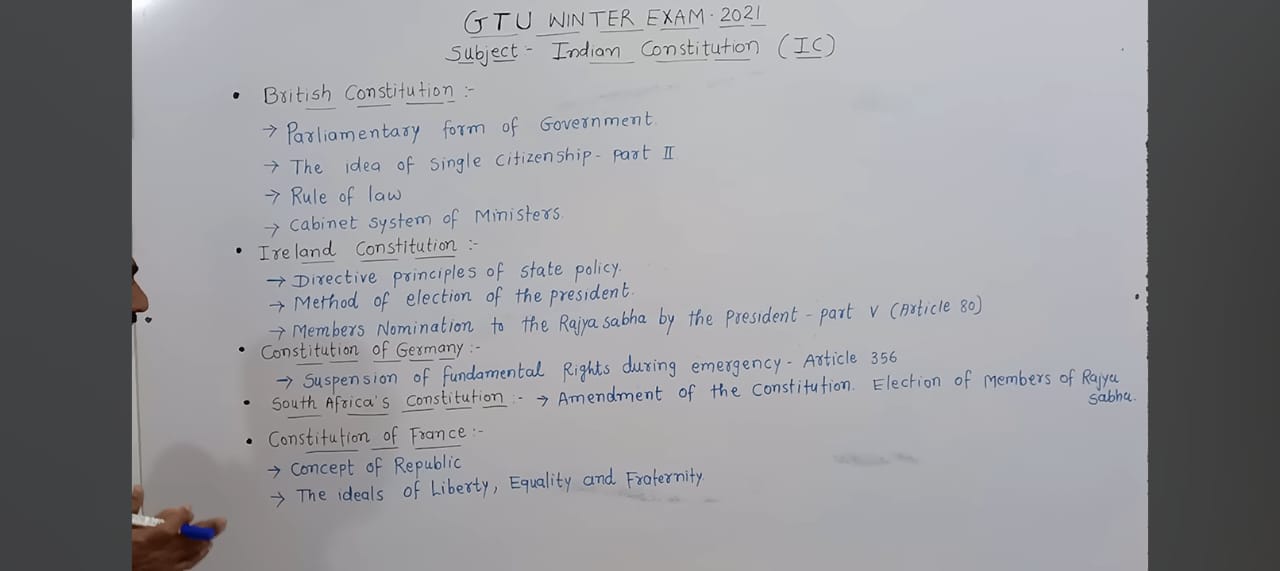 GTU WINTER EXAM. 2021
Subject - Indian Constitution (IC)
• British Constitution :-
→ Parliamentary form of Government.
→ The idea of single citizenship - part II
→ Rule of law
→ Cabinet system of Ministers.
• Ireland Constitution :-
→ Directive principles of state policy.
→ Method of election of the president.
→ Members Nomination to the Rajyasabha by the President - part V (Article 80)
• Constitution of Germany :-
→ Suspension of fundamental Rights during emergency - Article 356
• South Africa's Constitution :- → Amendment of the Constitution. Election of Members of Rajya
Sabha.
• Constitution of France :-
→ Concept of Republic
→ The ideals of Liberty, Equality and Fraternity.